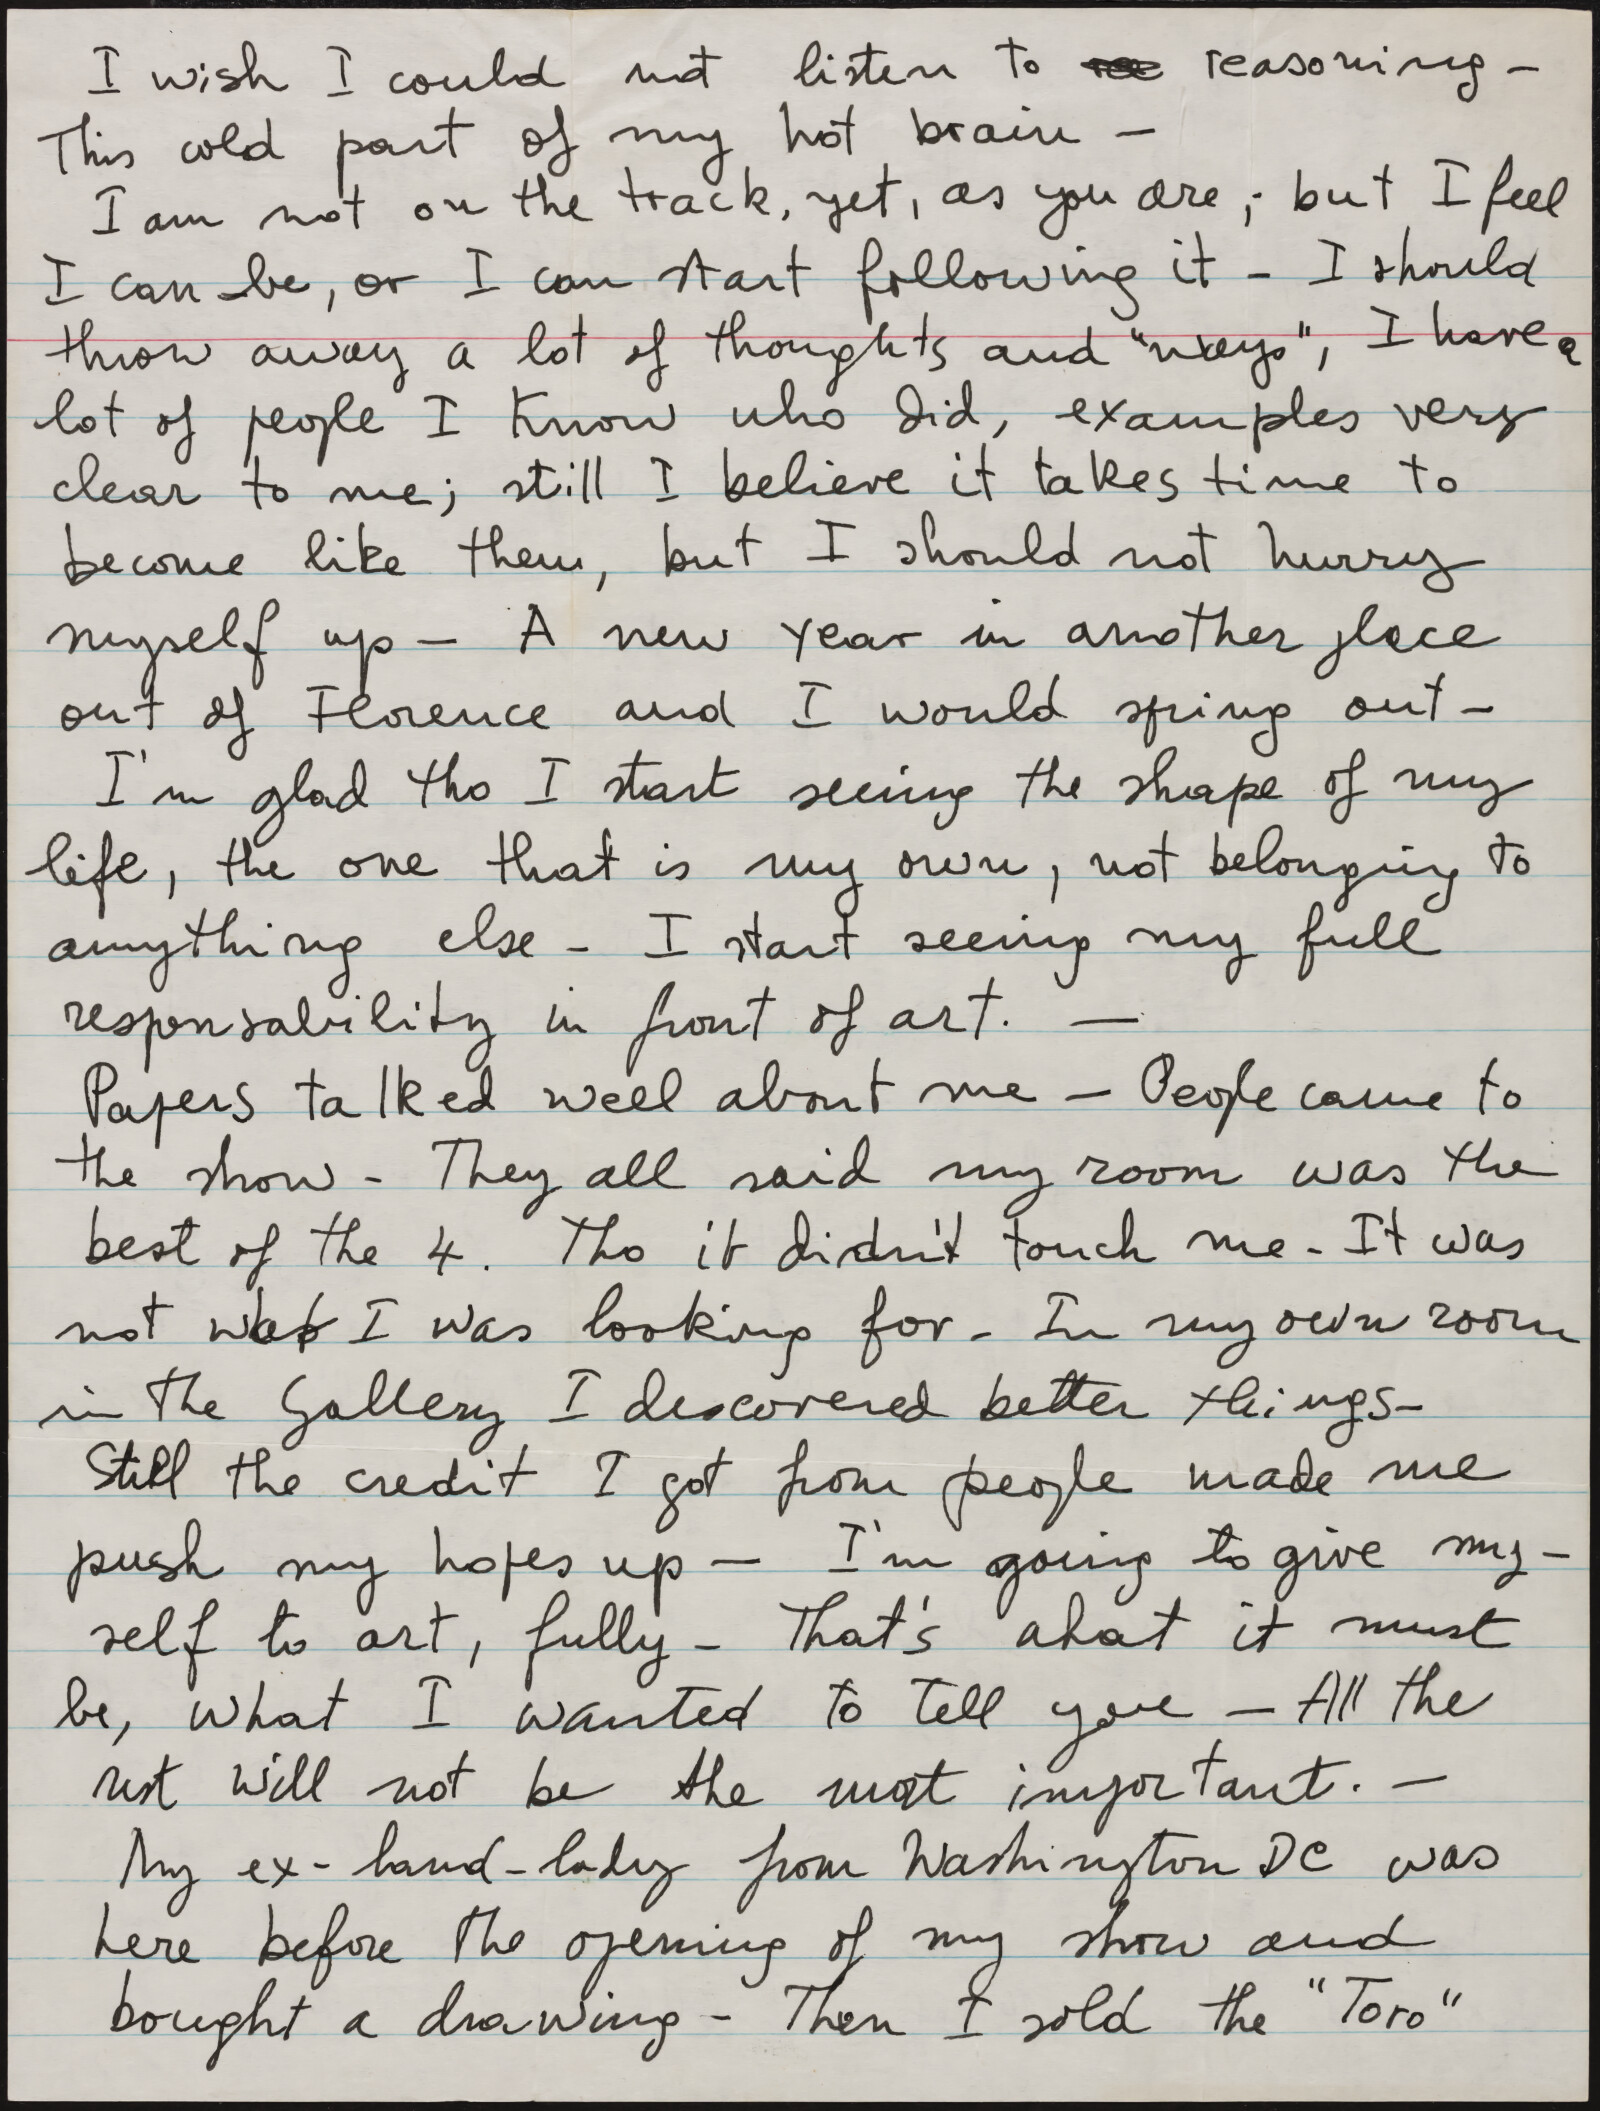 I wish I could not listen to reasoning -
This cold part of my hot brain -
I am not on the track, yet, as you are; but I feel
I can be, or I can start following it - I should
throw away a lot of thoughts and "ways", I have a
lot of people I know who did, examples very
clear to me; still I believe it takes time to
become like them, but I should not hurry
myself up - A new year in another place
out of Florence and I would spring out -
I'm glad tho I start seeing the shape of my
life, the one that is my own, not belonging to
anything else - I start seeing my full
responsability in front of art. -
Papers talked well about me - People came to
the show - They all said my room was the
best of the 4. Tho it didn't touch me - It was
not what I was looking for - In my own room
in the Gallery I descovered better things -
Still the credit I got from people made me
push my hopes up - I'm going to give my-
self to art, fully - That's ahat it must
be, what I wanted to tell you - All the
rest will not be the most important. -
My ex-land-lady from Washington DC was
here before the opening of my show and
bought a drawing - Then I sold the "Toro"